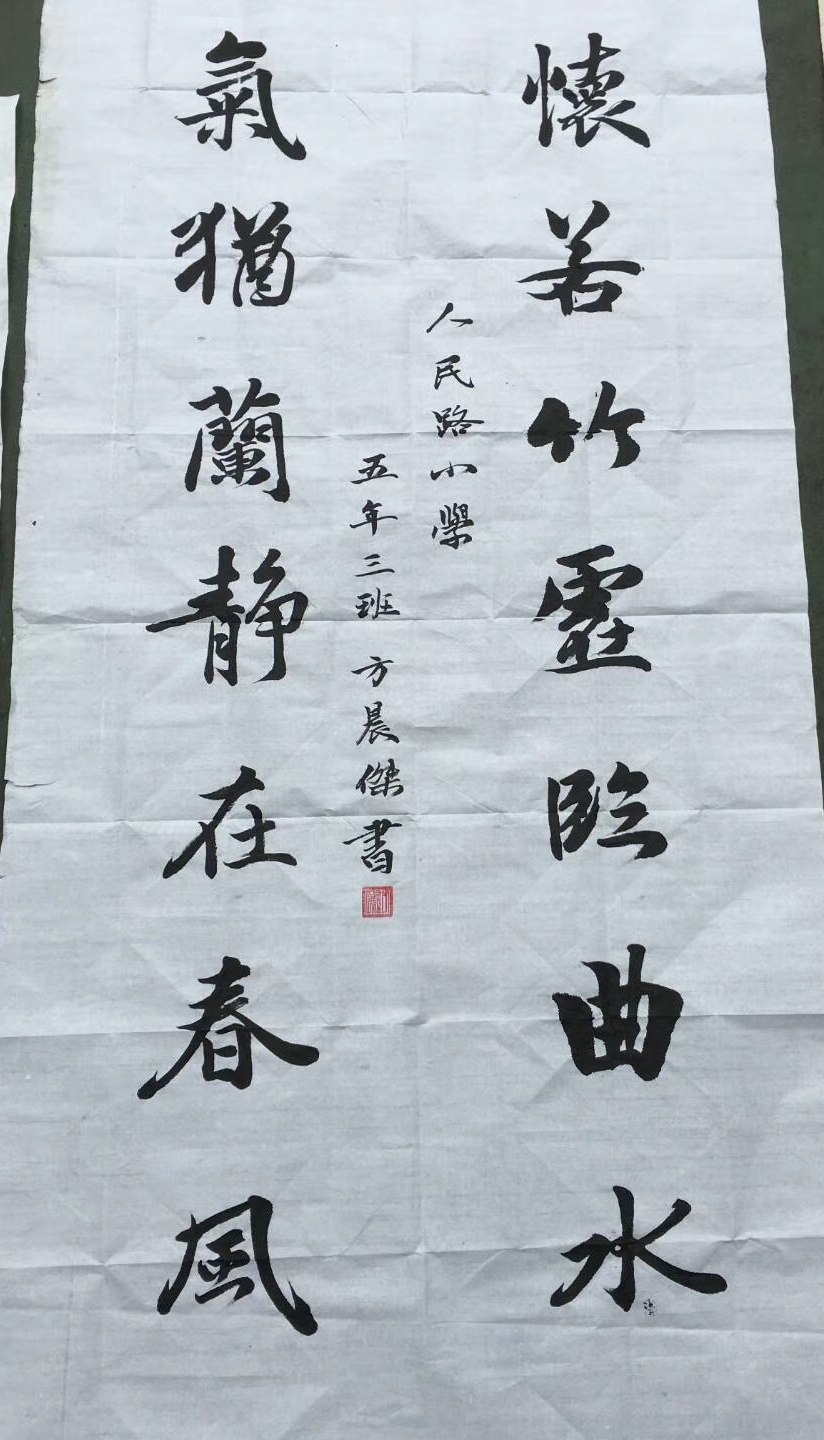 懷若竹虛臨曲水
人民路小學
五年三班 方晨傑書
氣猶蘭静在春風